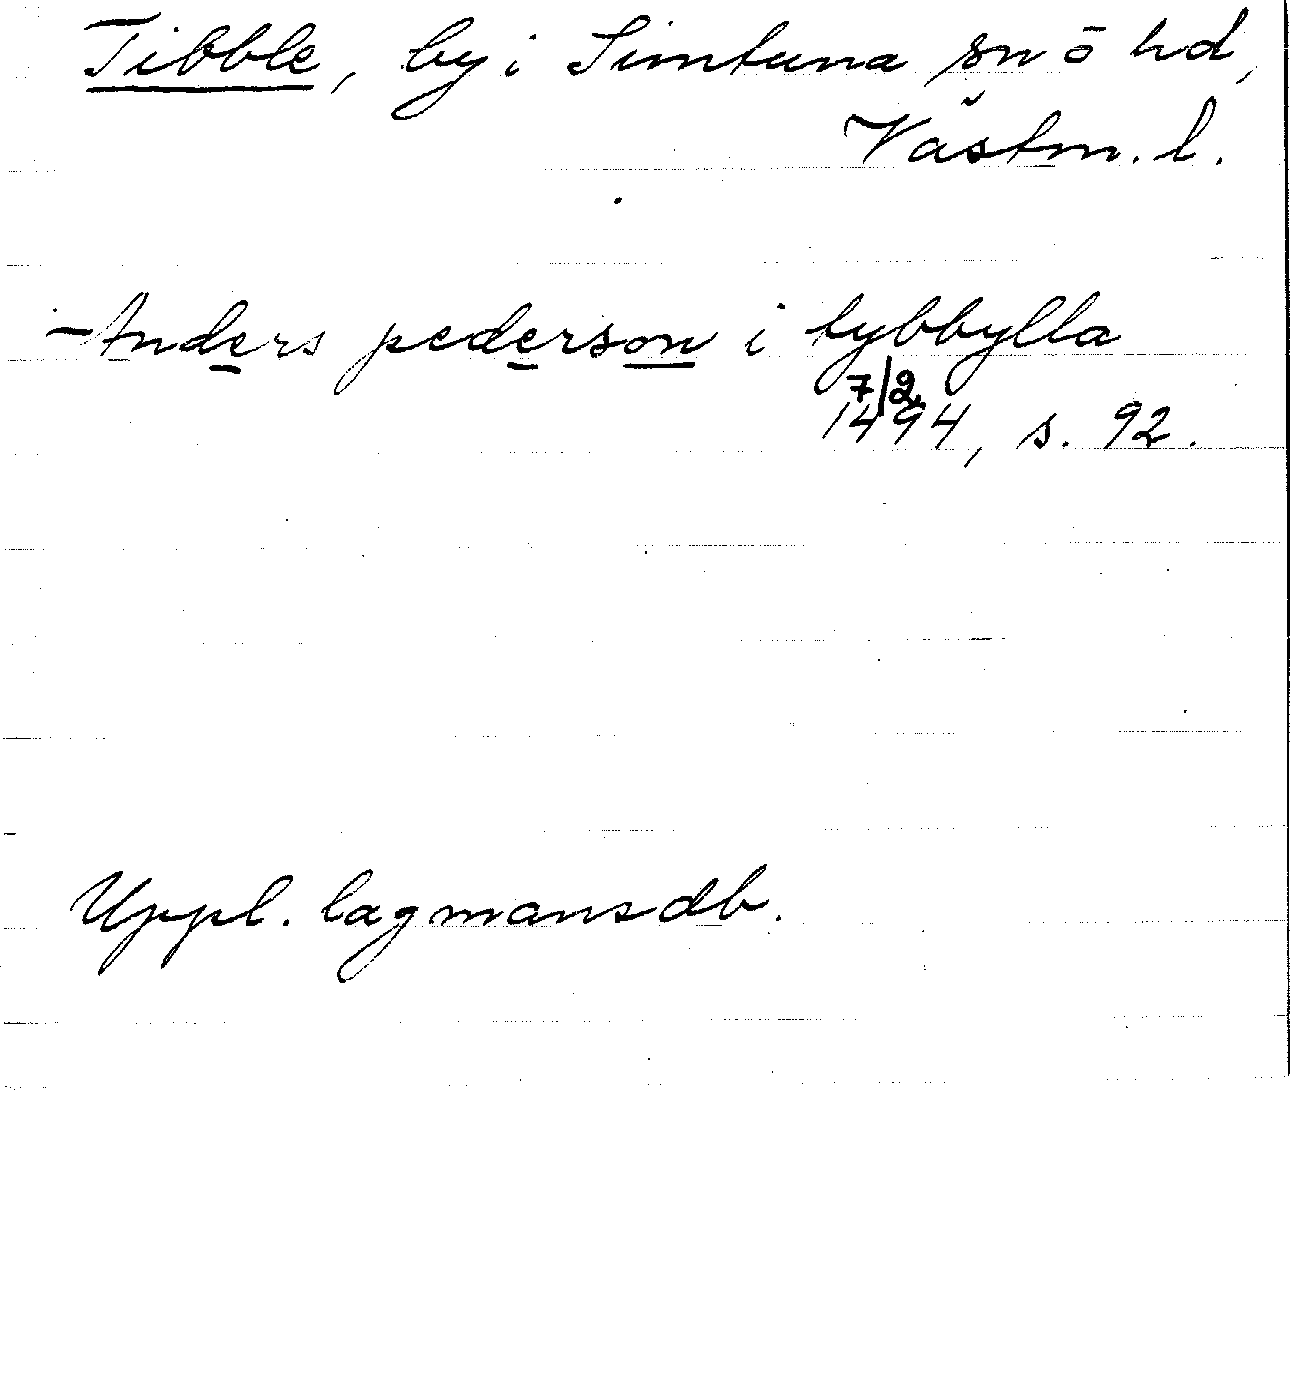 Tibble, by i Simtuna sn ō hd,
Västm. l.
- Anders pederson i tybbylla
7/2
1494, s. 92.
Uppl. lagmansdb.